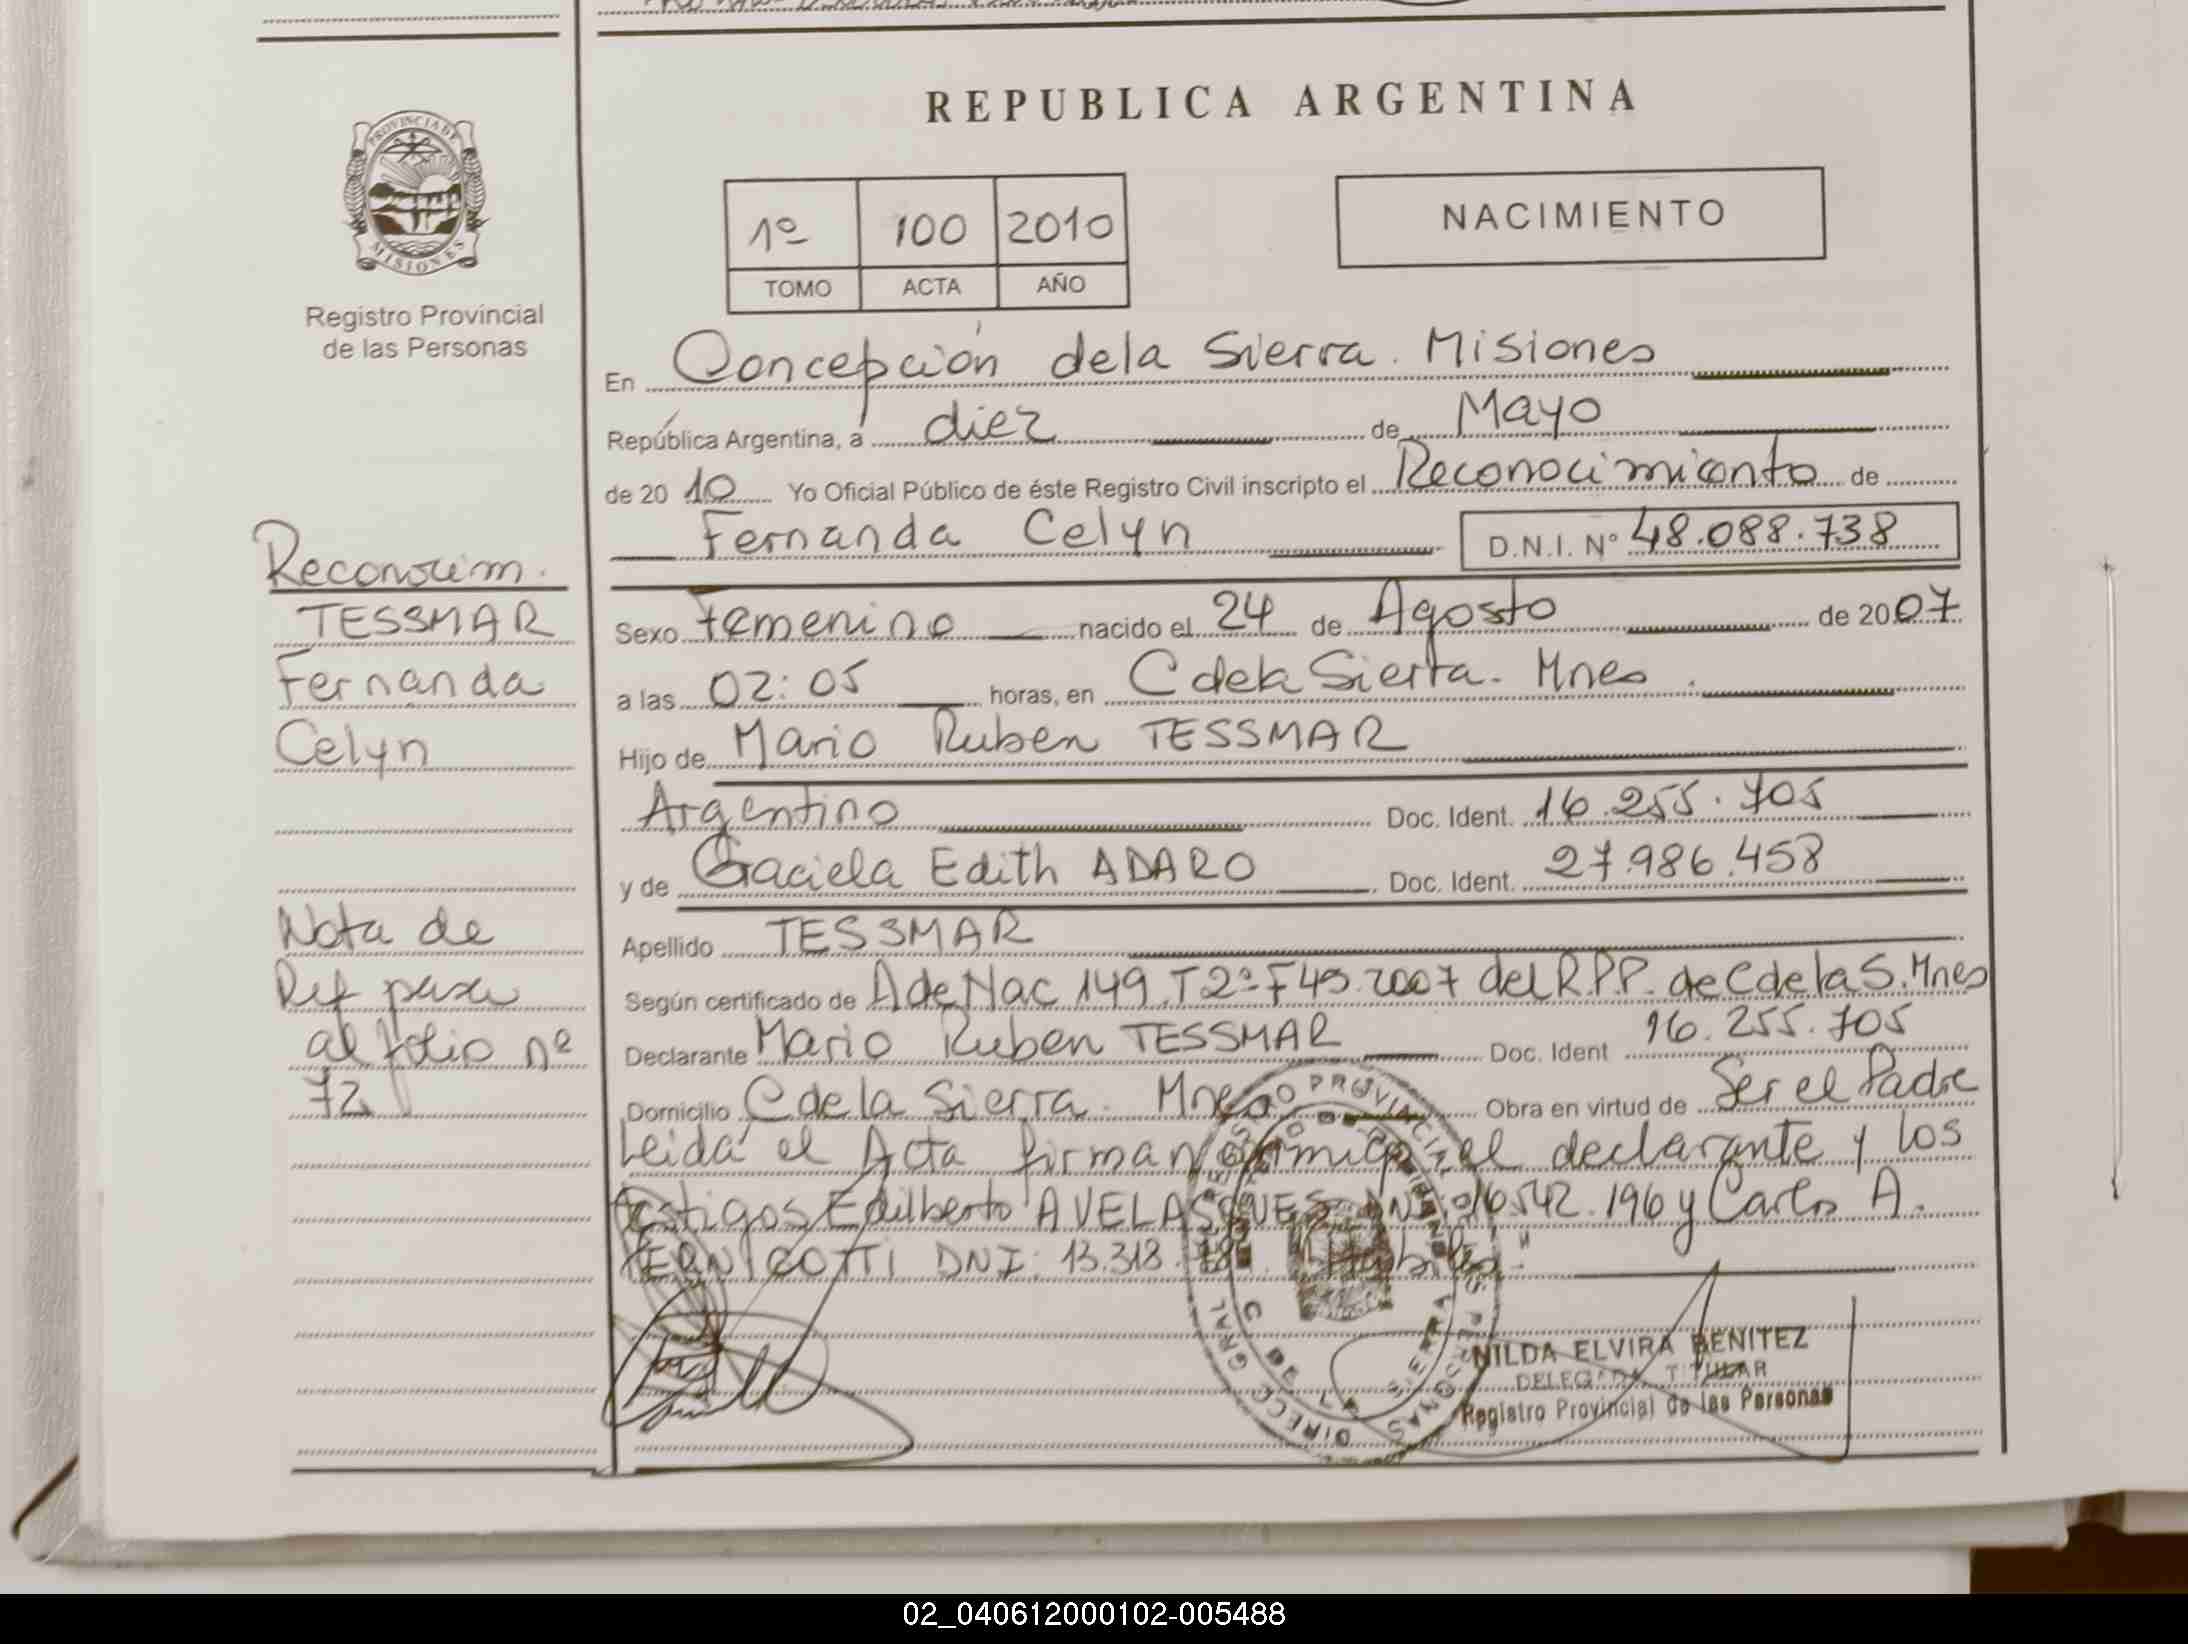 REPUBLICA ARGENTINA
PROVINCIA DE
MISIONES
Registro Provincial
de las Personas
1º 100 2010
TOMO ACTA AÑO
NACIMIENTO
En Concepción dela Sierra. Misiones
República Argentina, a diez de Mayo
de 20 10 Yo Oficial Público de éste Registro Civil inscripto el Reconocimiento de
Fernanda Celyn D.N.I. Nº 48.088.738
Sexo Femenino nacido el 24 de Agosto de 2007
a las 02:05 horas, en C dela Sierra. Mnes.
Hijo de Mario Ruben TESSMAR
Argentino Doc. Ident. 16.255.705
y de Graciela Edith ADARO Doc. Ident. 27.986.458
Apellido TESSMAR
Según certificado de A de Nac 149 T2º F49. 2007 del R.P.P. de C de la S. Mnes
Declarante Mario Ruben TESSMAR Doc. Ident 16.255.705
Domicilio C de la Sierra. Mnes Obra en virtud de Ser el Padre
Leida el Acta firman conmigo, el declarante y los
testigos Edilberto A VELASQUES DNI: 16.542.196 y Carlos A.
DNI: 13.313.
Reconocim.
TESSMAR
Fernanda
Celyn
Nota de
Ref pasa
al folio nº
72
NILDA ELVIRA BENITEZ
DELEGADA TITULAR
Registro Provincial de las Personas
02_040612000102-005488